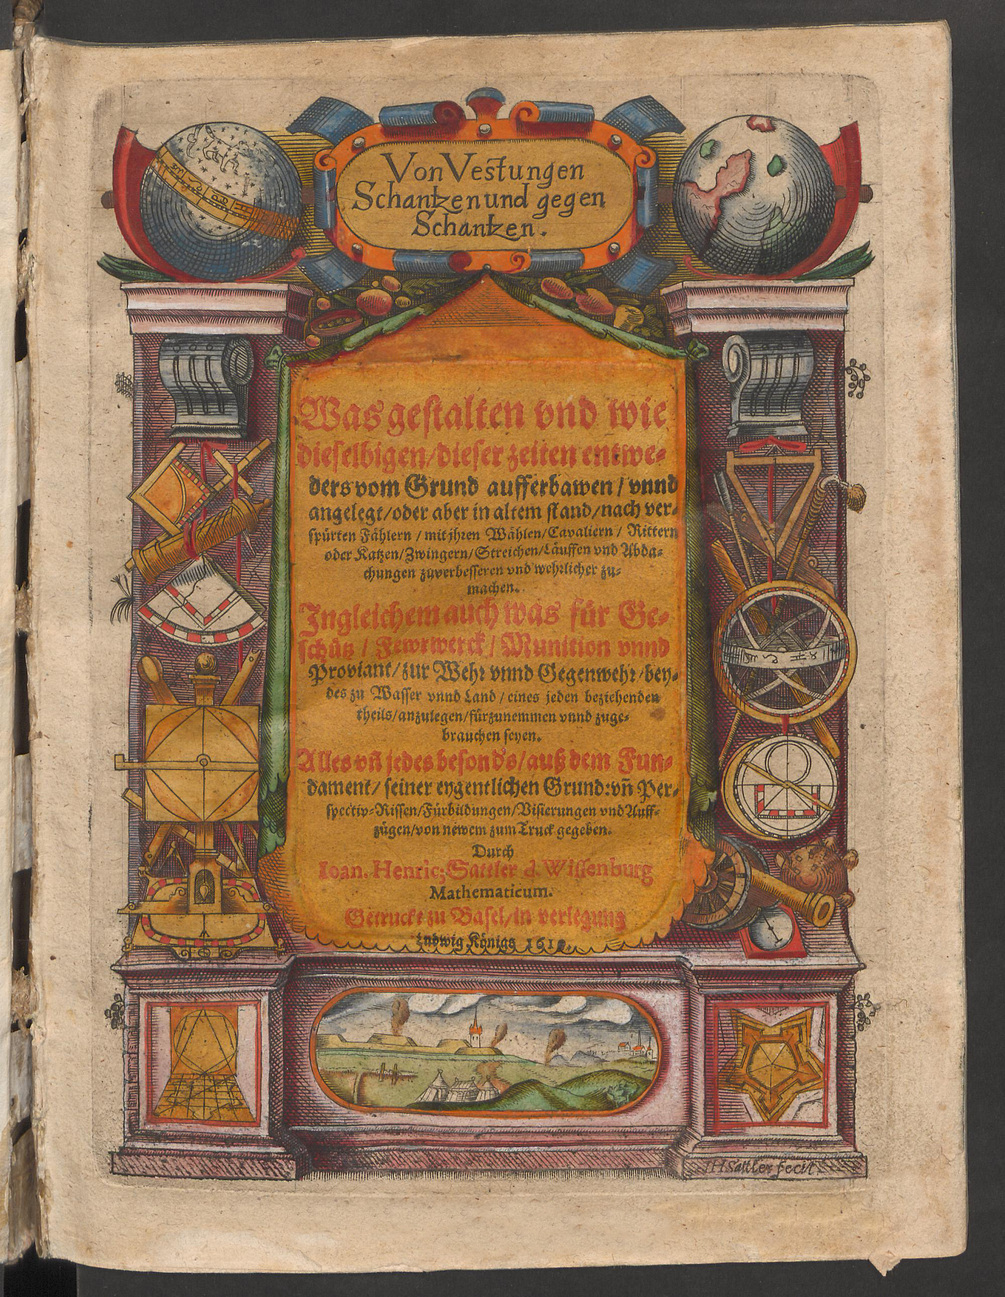 Von Vestungen
Schantzen und gegen
Schantzen.
Was gestalten vnd wie
dieselbigen/dieser zeiten entwe-
ders vom Grund aufferbawen/vnnd
angelegt/oder aber in altem stand/nach ver-
spürten Fählern/mit jhren Wählen/Cavaliern/Rittern
oder Katzen/Zwingern/Streichen/Läuffen vnd Abda-
chungen zuverbesseren vnd wehrlicher zu-
machen.
Ingleichem auch was für Ge-
schütz/Fewrwerck/Munition vnnd
Proviant/zur Wehr vnnd Gegenwehr/bey-
des zu Wasser vnnd Land/eines jeden beziehenden
theils/anzulegen/fürzunemmen vnnd zuge-
brauchen seyen.
Alles vñ jedes besonds/auß dem Fun-
dament/seiner eygentlichen Grund: vñ Per-
spectiv-Rissen/Fürbildungen/Visierungen vnd Auff-
zügen/von newem zum Truck gegeben.
Durch
Ioan. Henric; Sattler d. Wissenburg
Mathematicum.
Getruckt zu Basel/in verlegung
Ludwig Königs
JHSattler fecit